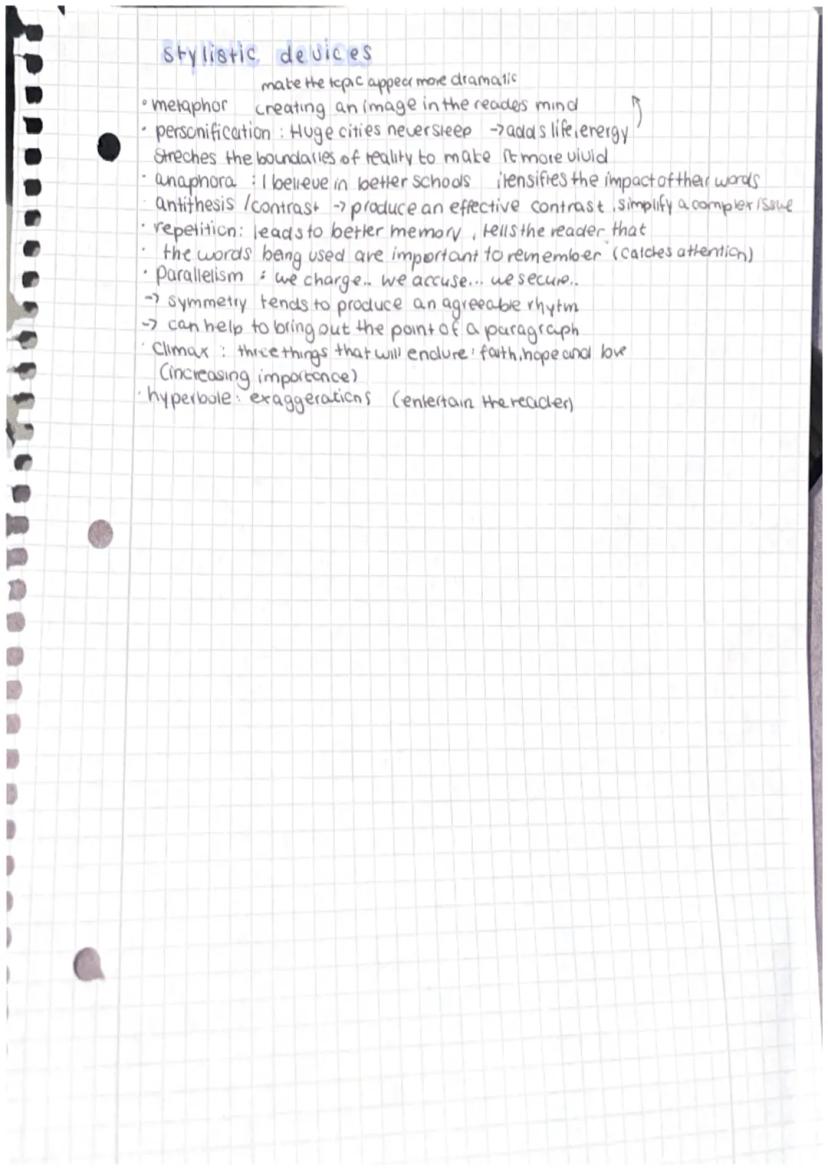 stylistic devices
make the topic appear more dramatic
• metaphor creating an image in the reades mind
• personification : Huge cities never sleep -> adds life, energy
streches the boundaries of reality to make it more vivid
• anaphora : I believe in better schools itensifies the impact of their words
antithesis / contrast -> produce an effective contrast, simplify a complex issue
• repetition: leads to better memory, tells the reader that
• the words being used are important to remember (catches attention)
• Parallelism : we charge.. we accuse... we secure..
-> symmetry tends to produce an agreeable rhytm
-> can help to bring out the point of a paragraph
• Climax : three things that will endure: faith, hope and love
(increasing importance)
• hyperbole: exaggerations (entertain the reader)